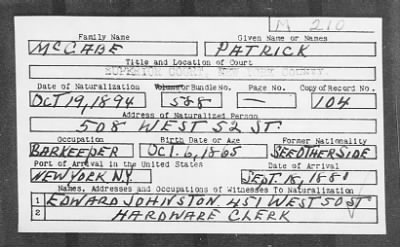 M 210
Family Name Given Name or Names
McCABE PATRICK
Title and Location of Court
SUPERIOR COURT, NEW YORK COUNTY.
Date of Naturalization Volume or Bundle No. Page No. Copy of Record No.
OCT 19, 1894 588 — 104
Address of Naturalized Person
508 WEST 52 ST.
Occupation Birth Date or Age Former Nationality
BARKEEPER OCT. 6, 1865 SEE OTHER SIDE
Port of Arrival in the United States Date of Arrival
NEW YORK N.Y. SEPT. 18, 1881
Names, Addresses and Occupations of Witnesses To Naturalization
1 EDWARD JOHNSTON 451 WEST 50 ST
2 HARDWARE CLERK